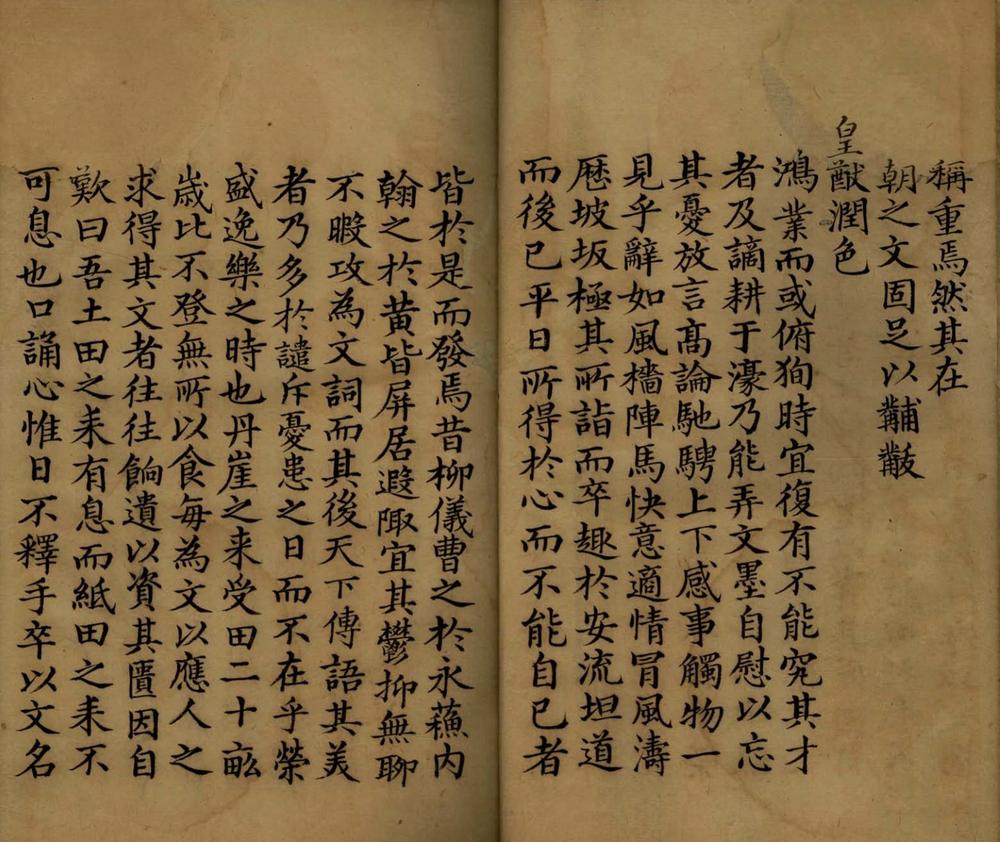 稱重焉然其在
朝之文固足以黼黻
皇猷潤色
鴻業而或俯狥時宜復有不能究其才
者及謫耕于濠乃能弄文墨自慰以忘
其憂放言髙論馳騁上下感事觸物一
見乎辭如風檣陣馬快意適情冒風濤
歴坡坂極其所詣而卒趣於安流坦道
而後已平日所得於心而不能自已者
皆於是而發焉昔柳儀曹之於永蘓内
翰之於黄皆屏居遐陬宜其鬱抑無聊
不暇攻為文詞而其後天下傳語其美
者乃多於譴斥憂患之日而不在乎榮
盛逸樂之時也丹崖之来受田二十畝
歳比不登無所以食每為文以應人之
求得其文者往往餉遺以資其匱因自
歎曰吾土田之耒有息而紙田之耒不
可息也口誦心惟日不釋手卒以文名